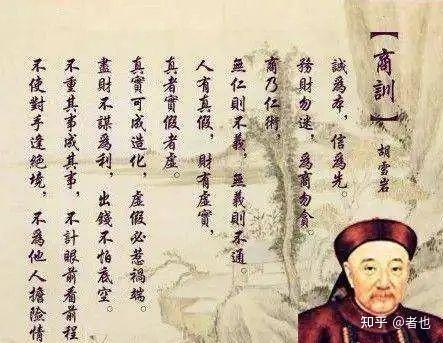 【商訓】
胡雪岩
誠為本，信為先。
務財勿迷，為商勿貪。
商乃仁術，
無仁則不義，無義則不通。
人有真假，財有虛實，
真者實假者虛。
真實可成造化，虛假必惹禍端。
盡財不謀為利，出錢不怕底空。
不重其事成其事，不計眼前看前程
不使對手逢絕境，不為他人擔險情
知乎 @者也